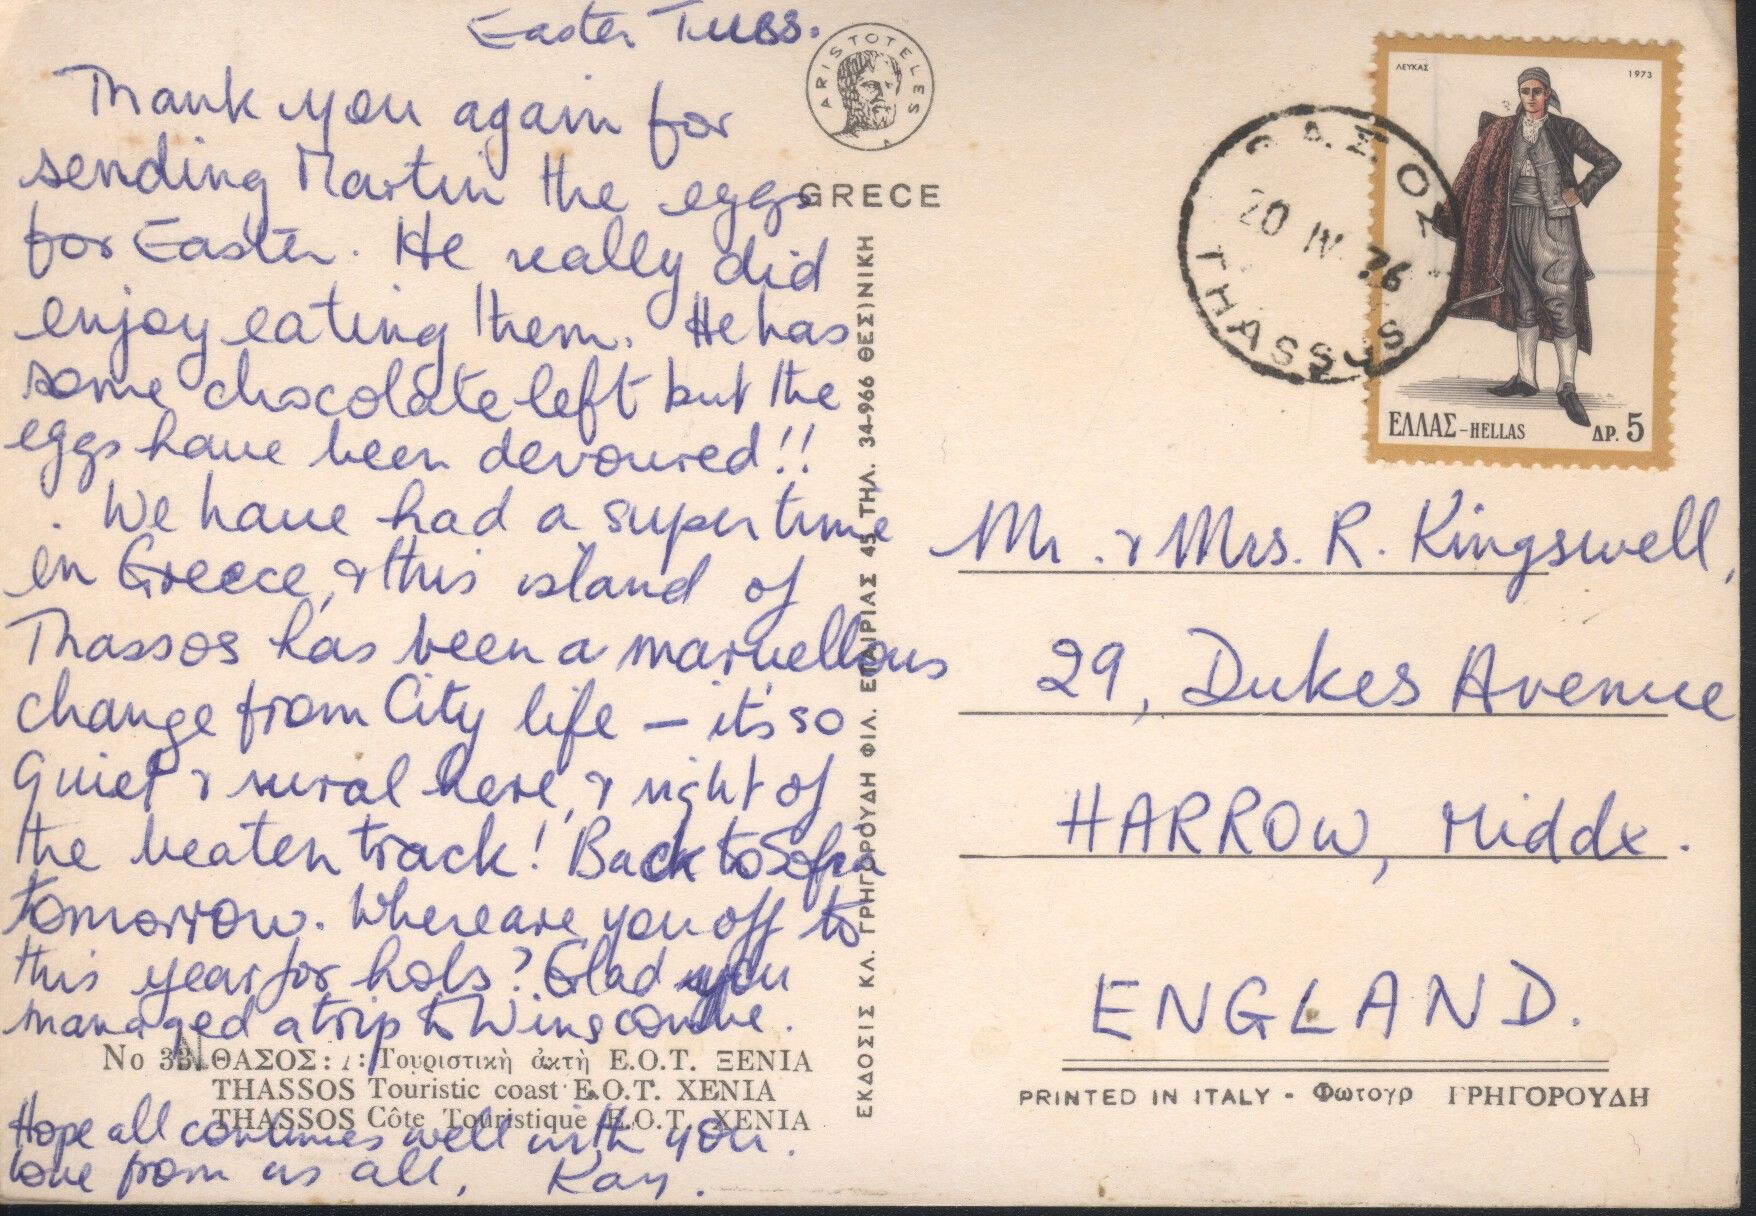 Easter Tues.
Thank you again for
sending Martin the eggs
for Easter. He really did
enjoy eating them. He has
some chocolate left but the
eggs have been devoured!!
We have had a super time
in Greece, & this island of
Thassos has been a marvellous
change from City life – it's so
quiet & rural here, & right of
the beaten track! Back to Sofia
tomorrow. Where are you off to
this year for hols? Glad you
managed a trip to Winscombe.
Hope all continues well with you.
Love from us all, Kay.
No 33 ΘΑΣΟΣ: Τουριστικὴ ἀκτὴ Ε.Ο.Τ. ΞΕΝΙΑ
THASSOS Touristic coast E.O.T. XENIA
THASSOS Côte Touristique E.O.T. XENIA
ARISTOTELES
GRECE
ΕΚΔΟΣΙΣ ΚΛ. ΓΡΗΓΟΡΟΥΔΗ ΦΙΛ. ΕΤΑΙΡΙΑΣ 45 ΤΗΛ. 34-966 ΘΕΣ)ΝΙΚΗ
ΘΑΣΟΣ
20 IV 76
THASSOS
ΛΕΥΚΑΣ 1973
ΕΛΛΑΣ-HELLAS ΔΡ. 5
Mr. & Mrs. R. Kingswell,
29, Dukes Avenue
HARROW, Middx.
ENGLAND.
PRINTED IN ITALY - Φωτογρ ΓΡΗΓΟΡΟΥΔΗ